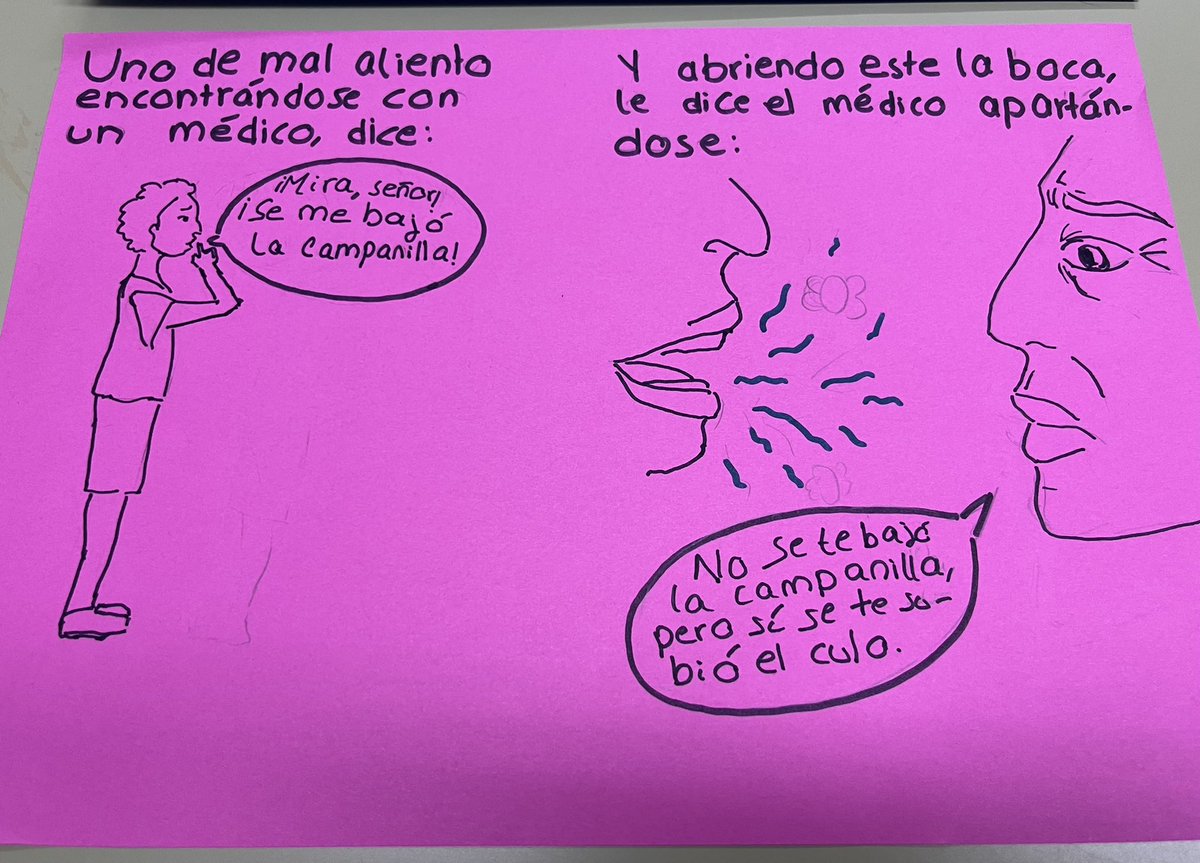 Uno de mal aliento
encontrándose con
un médico, dice:
¡Mira, señor!
¡Se me bajó
la campanilla!
Y abriendo este la boca,
le dice el médico apartán-
dose:
No se te bajó
la campanilla,
pero sí se te so-
bió el culo.